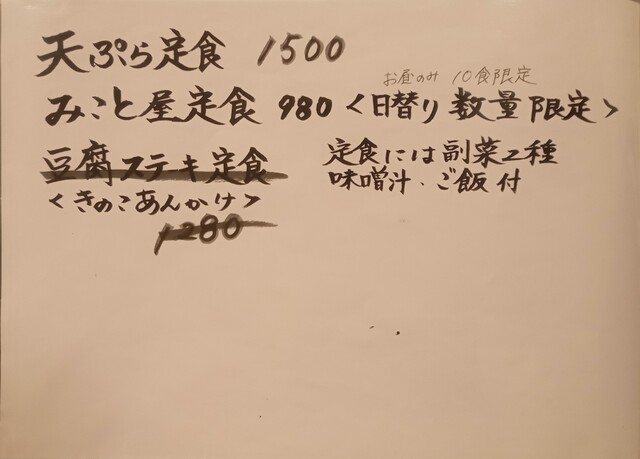 天ぷら定食 1500
お昼のみ 10食限定
みこと屋定食 980 <日替り 数量限定>
豆腐ステキ定食
<きのこあんかけ>
1280
定食には副菜2種
味噌汁・ご飯付